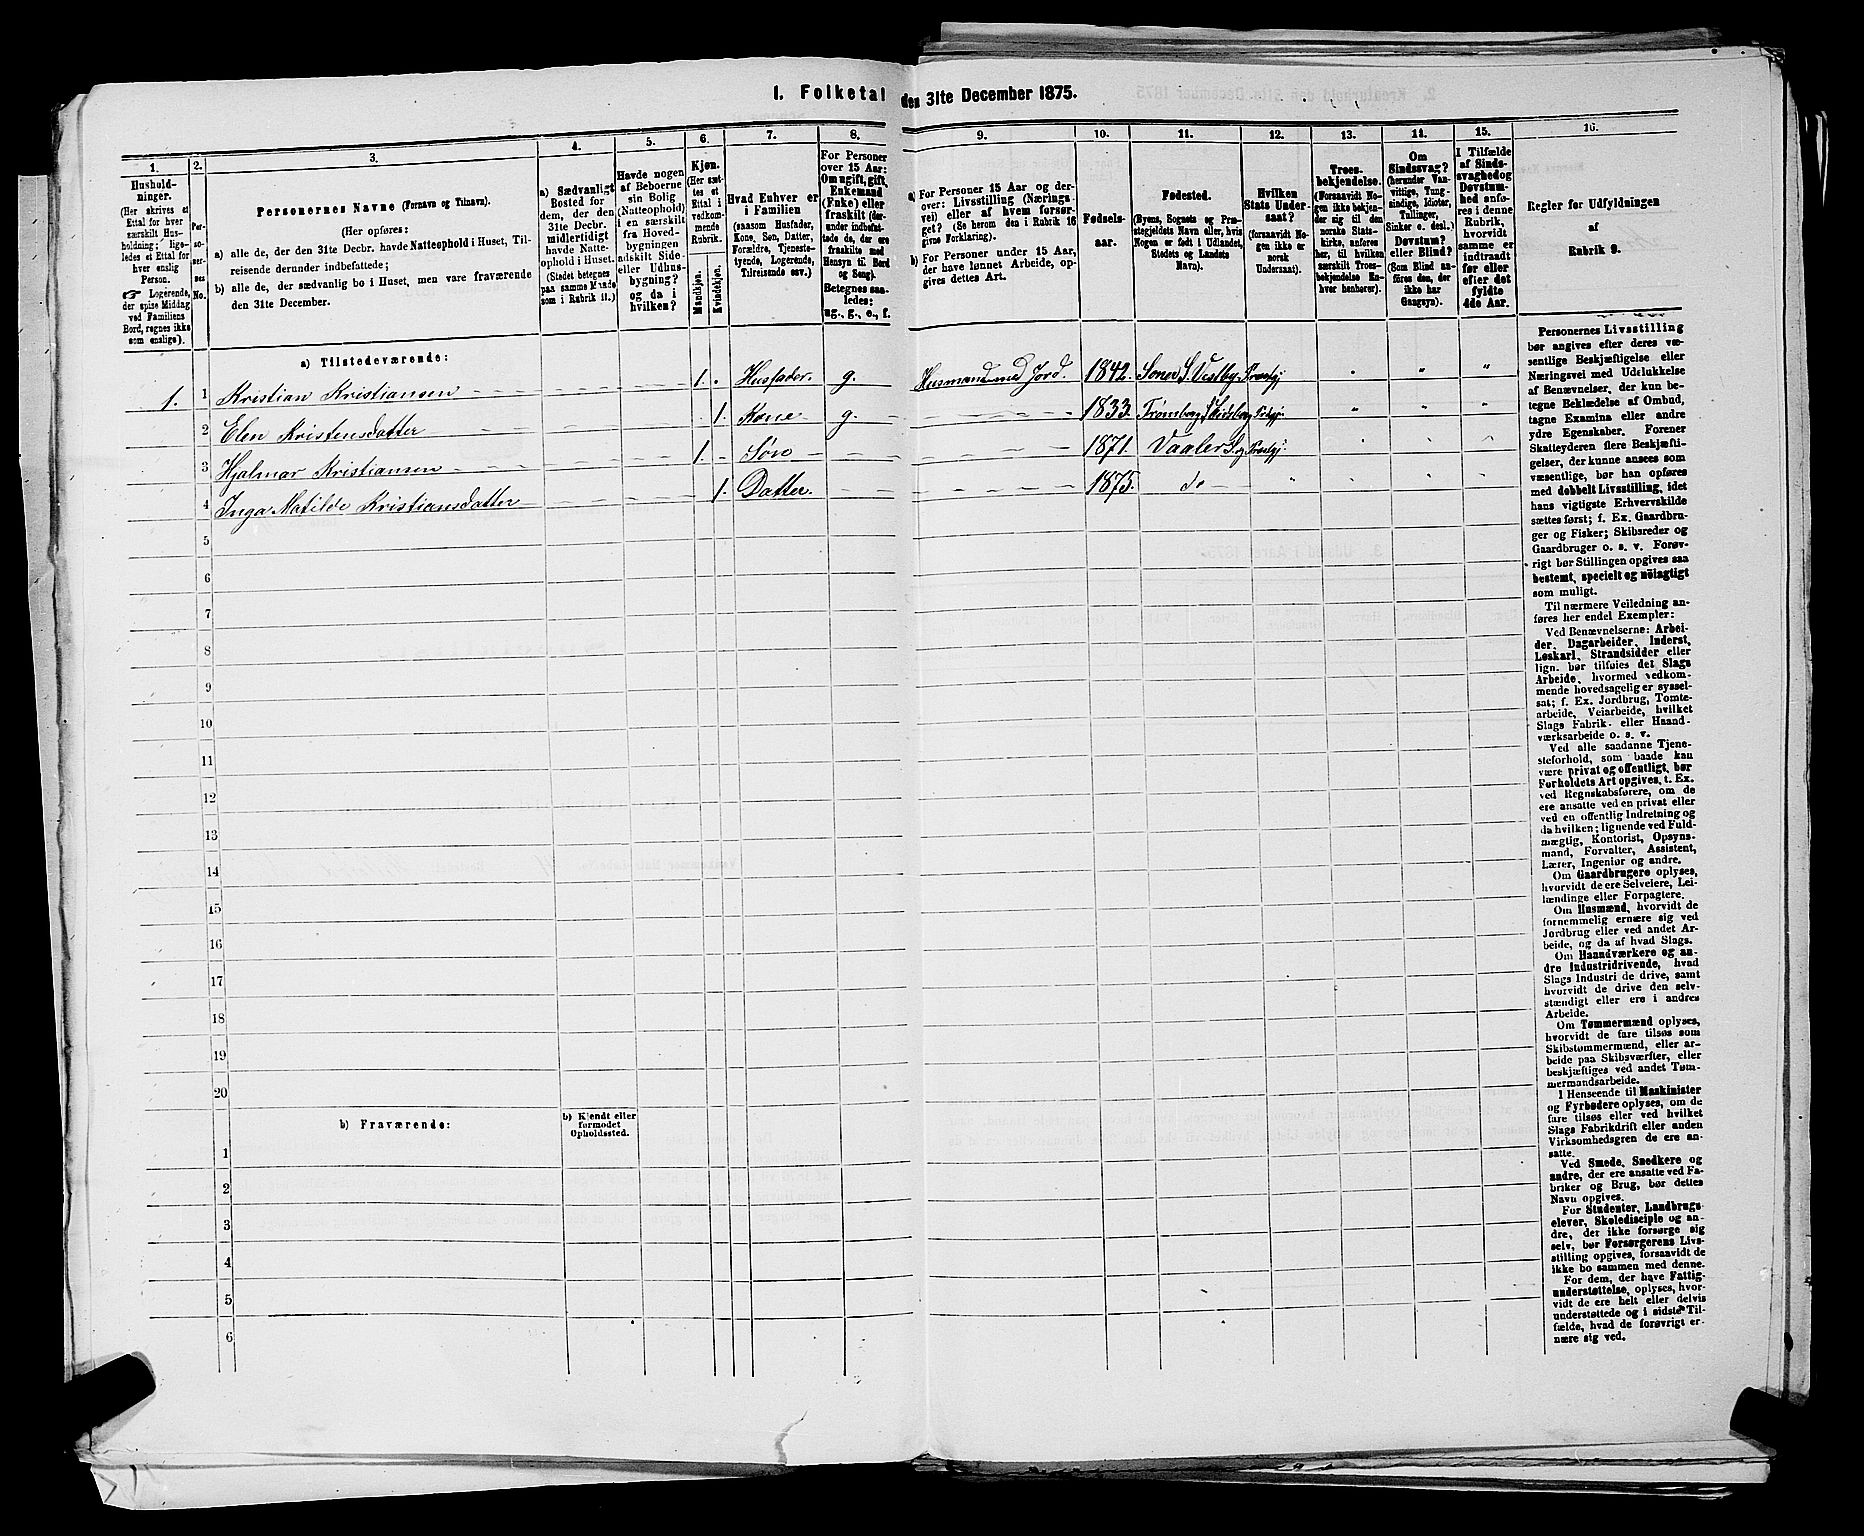 1. Folketal den 31te December 1875.
1.
2.
3.
4.
5.
6.
7.
8.
9.
10.
11.
12.
13.
14.
15.
16.
Hushold-
ninger.
(Her skrives et
Ettal for hver
særskilt Hus-
holdning; lige-
ledes et Ettal for
hver enslig
Person.
☞ Logerende,
der spise Middag
ved Familiens
Bord, regnes ikke
som enslige).
Per-
so-
ner-
nes
No.
Personernes Navne (Fornavn og Tilnavn).
(Her opføres:
a) alle de, der den 31te Decbr. havde Natteophold i Huset, Til-
reisende derunder indbefattede;
b) alle de, der sædvanlig bo i Huset, men vare fraværende
den 31te December.
a) Sædvanligt
Bosted for
dem, der den
31te Decbr.
midlertidigt
havde Natte-
ophold i Huset.
(Stedet betegnes
paa samme Maade
som i Rubrik 11.)
Havde nogen
af Beboerne
sin Bolig
(Natteophold)
i en særskilt
fra Hoved-
bygningen
adskilt Side-
eller Udhus-
bygning?
og da i
hvilken?
Kjøn.
(Her sæt-
tes et
Ettal i
vedkom-
mende
Rubrik.
Mandkjøn.
Kvindekjøn.
Hvad Enhver er
i Familien
(saasom Husfader,
Kone, Søn, Datter,
Forældre, Tjeneste-
tyende, Logerende,
Tilreisende osv.)
For Personer
over 15 Aar:
Om ugift, gift,
Enkemand
(Enke) eller
fraskilt (der-
under indbefat-
tede de, der ere
fraskilte med
Hensyn til Bord
og Seng).
Betegnes saa-
ledes:
ug., g., e., f.
a) For Personer 15 Aar og der-
over: Livsstilling (Nærings-
vei) eller af hvem forsør-
get? (Se herom den i Rubrik 16
givne Forklaring).
b) For Personer under 15 Aar,
der have lønnet Arbeide, op-
gives dettes Art.
Fødsels-
aar.
Fødested.
(Byens, Sognets og Præ-
stegjeldets Navn eller, hvis
Nogen er født i Udlandet,
Stedets og Landets
Navn).
Hvilken
Stats Under-
saat?
(forsaavidt No-
gen ikke er
norsk
Undersaat).
Troes-
bekjendelse.
(Forsaavidt No-
gen ikke bekjen-
der sig til den
norske Stats-
kirke, anføres
her, til hvilken
særskilt Troes-
bekjendelse En-
hver henhører).
Om
Sindssvag?
(herunder Van-
vittige, Tung-
sindige, Idioter,
Tullinger,
Sinker o. desl.)
Døvstum?
eller Blind?
(Som Blind an-
føres den, der
ikke har
Gangsyn).
I Tilfælde
af Sinds-
svaghed og
Døvstum-
hed anfø-
res i denne
Rubrik,
hvorvidt
samme er
indtraadt
før eller
efter det
fyldte
4de Aar.
Regler for Udfyldningen
af
Rubrik 9.
a) Tilstedeværende:
1. 1 Kristian Kristiansen 1. Husfader. g. Husmand med Jord. 1842. Soner S. Vestby Præstgj " " "
2 Elen Kristensdatter 1. Kone g. 1833. " " "
3 Hjalmar Kristiansen 1. Søn 1871. Vaaler S. og Præstgj. " " "
4 Inga Matilde Kristiansdatter 1. Datter. 1875. do " " " "
5
6
7
8
9
10
11
12
13
14
15
16
17
18
19
20
b) Fraværende:
b) Kjendt eller
formodet
Opholdssted.
1
2
3
4
5
6
Personernes Livsstilling
bør angives efter deres væ-
sentlige Beskjæftigelse eller
Næringsvei med Udelukkelse
af Benævnelser, der kun be-
tegne Beklædelse af Ombud,
tagne Examina eller andre
ydre Egenskaber. Forener
Skatteyderen flere Beskjæfti-
gelser, der kunne ansees som
væsentlige, bør han opføres
med dobbelt Livsstilling, idet
hans vigtigste Erhvervskilde
sættes først; f. Ex. Gaardbru-
ger og Fisker; Skibsreder og
Gaardbruger o. s. v. Forøv-
rigt bør Stillingen opgives saa
bestemt, specielt og nöiagtigt
som muligt.
Til nærmere Veiledning an-
føres her endel Exempler:
Ved Benævnelserne: Arbei-
der, Dagarbeider, Inderst,
Løskarl, Strandsidder eller
lign. bør tilføies det Slags
Arbeide, hvormed vedkom-
mende hovedsagelig er syssel-
sat; f. Ex. Jordbrug, Tomte-
arbeide, Veiarbeide, hvilket
Slags Fabrik- eller Haand-
værksarbeide o. s. v.
Ved alle saadanne Tjene-
steforhold, som baade kan
være privat og offentligt, bør
Forholdets Art opgives, t. Ex.
ved Regnskabsførere, om de
ere ansatte ved en privat eller
ved en offentlig Indretning og
da hvilken; lignende ved Fuld-
mægtig, Kontorist, Opsyns-
mand, Forvalter, Assistent,
Lærer, Ingeniør og andre.
Om Gaardbrugere oplyses,
hvorvidt de ere Selveiere, Lei-
lændinge eller Forpagtere.
Om Husmænd, hvorvidt de
fornemmelig ernære sig ved
Jordbrug eller ved andet Ar-
beide, og da af hvad Slags.
Om Haandværkere og an-
dre Industridrivende, hvad
Slags Industri de drive, samt
hvorvidt de drive den selv-
stændigt eller ere i andres
Arbeide.
Om Tømmermænd oplyses,
hvorvidt de fare tilsøs som
Skibstømmermænd, eller ar-
beide paa Skibsværfter, eller
beskjæftiges ved andet Tøm-
mermandsarbeide.
I Henseende til Maskinister
og Fyrbødere oplyses, om de
fare tilsøs eller ved hvilket
Slags Fabrikdrift eller anden
Virksomhedsgren de ere an-
satte.
Ved Smede, Snedkere og
andre, der ere ansatte ved Fa-
briker og Brug, bør dettes
Navn opgives.
For Studenter, Landbrugs-
elever, Skoledisciple og an-
dre, der ikke forsørge sig
selv, bør Forsørgerens Livs-
stilling opgives, forsaavidt de
ikke bo sammen med denne.
For dem, der have Fattig-
understøttelse, oplyses, hvor-
vidt de ere helt eller delvis
understøttede og i sidste Til-
fælde, hvad de forøvrigt er-
nære sig ved.